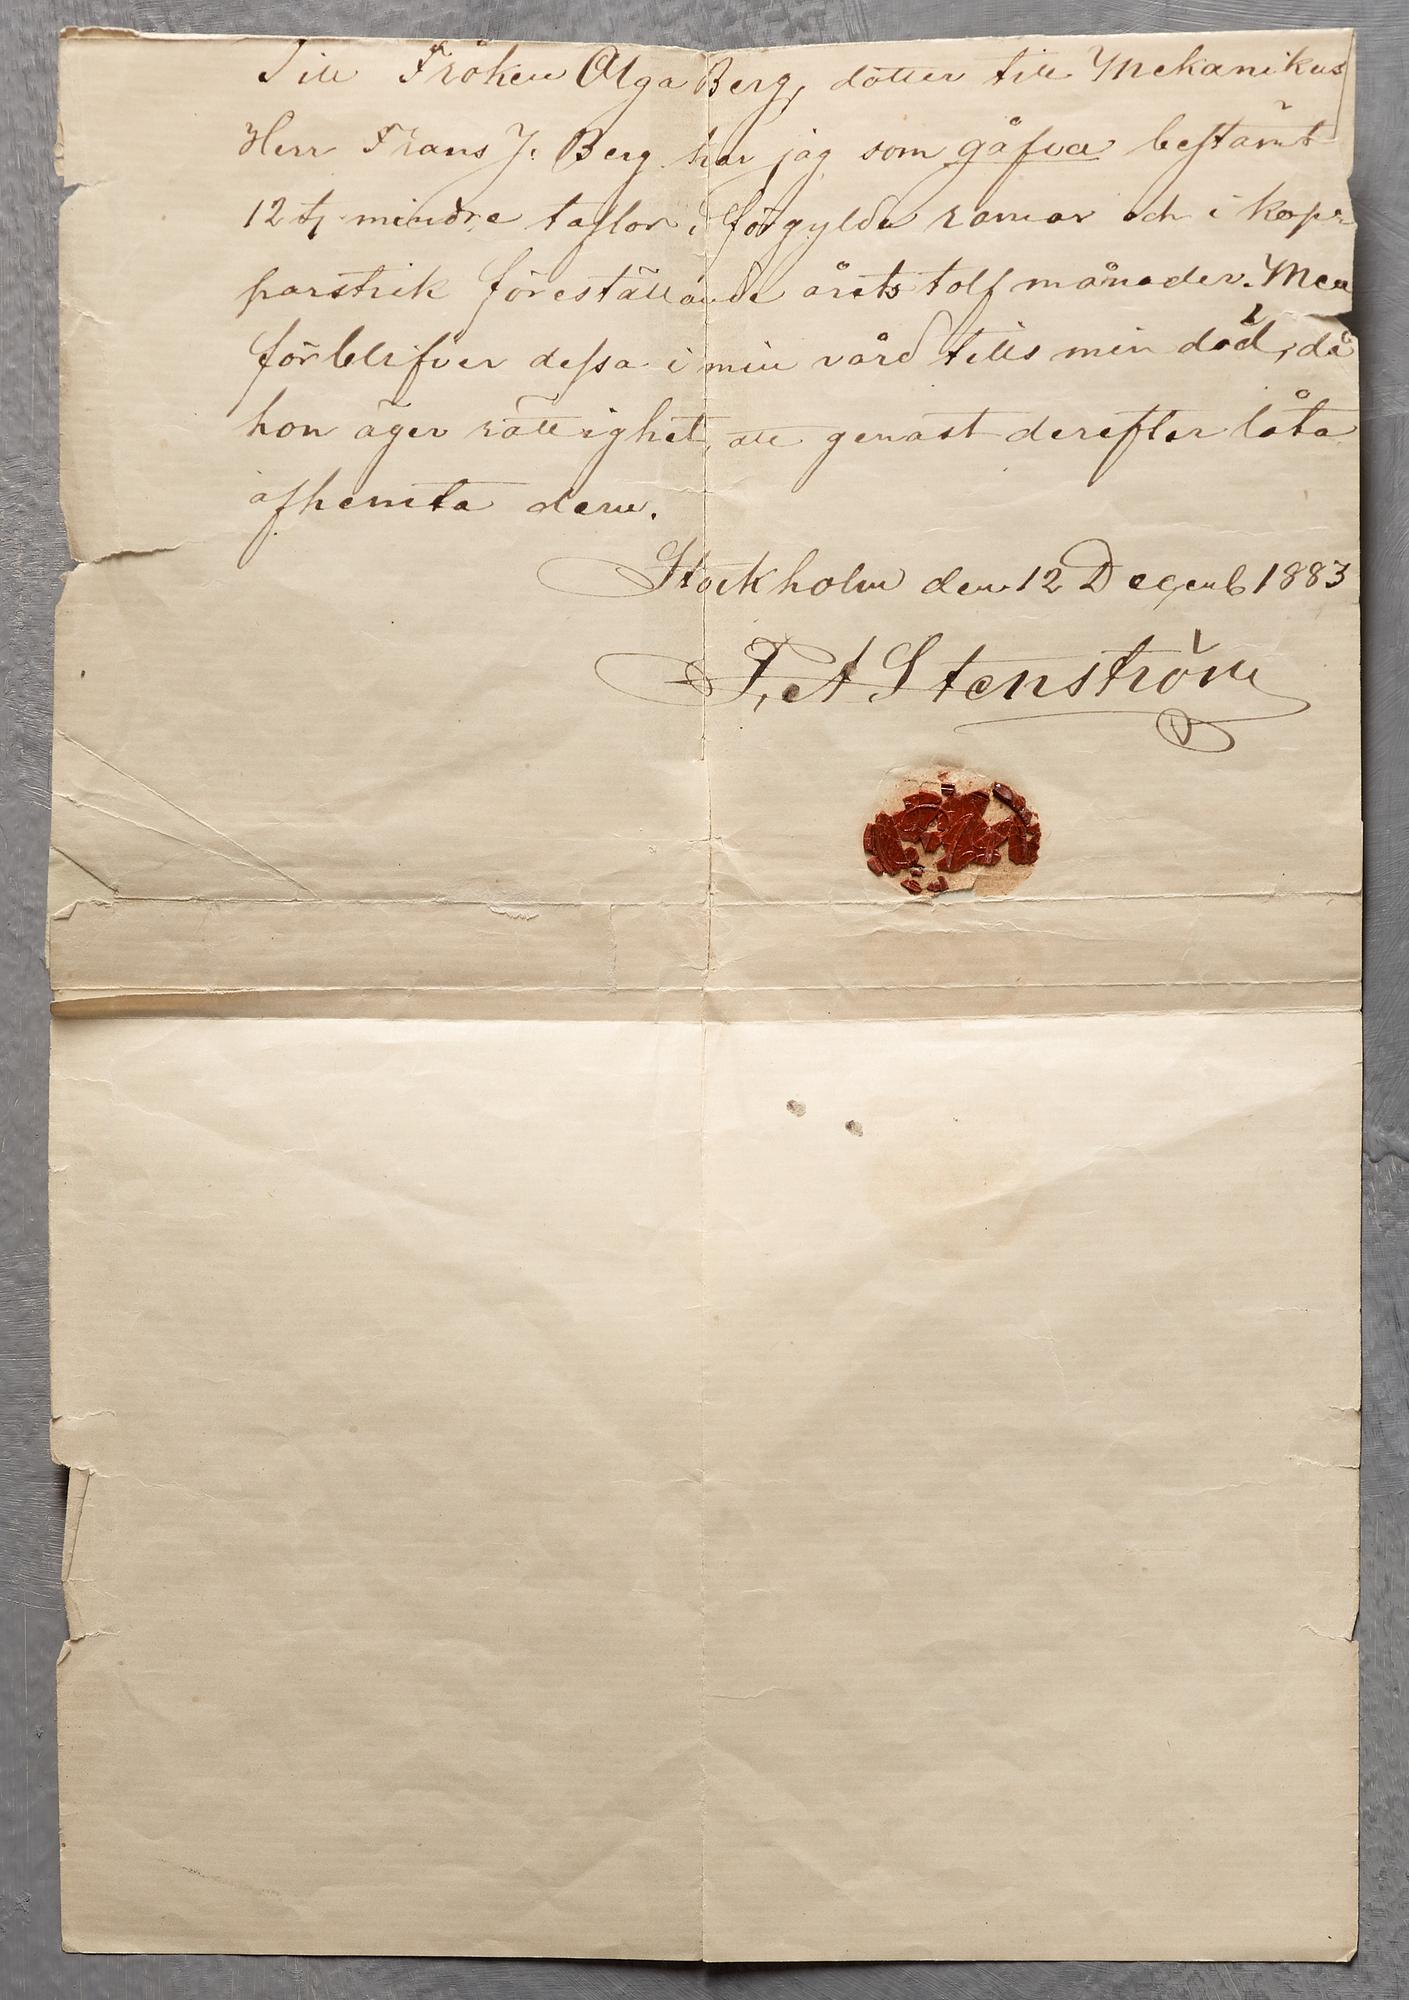 Till Fröken Olga Berg, dotter till Mekanikus
Herr Frans J. Berg har jag som gåfva bestämt
12 st mindre taflor i förgylda ramar och i kop-
parstick föreställande årets tolf månader. Men
förblifver dessa i min vård tills min död, då
hon äger rättighet att genast derefter låta
afhemta dem.
Stockholm den 12 Decemb 1883
F, A Stenström